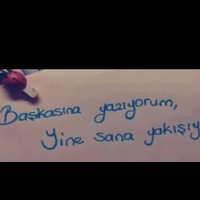 Başkasına yazıyorum,
Yine sana yakışıy